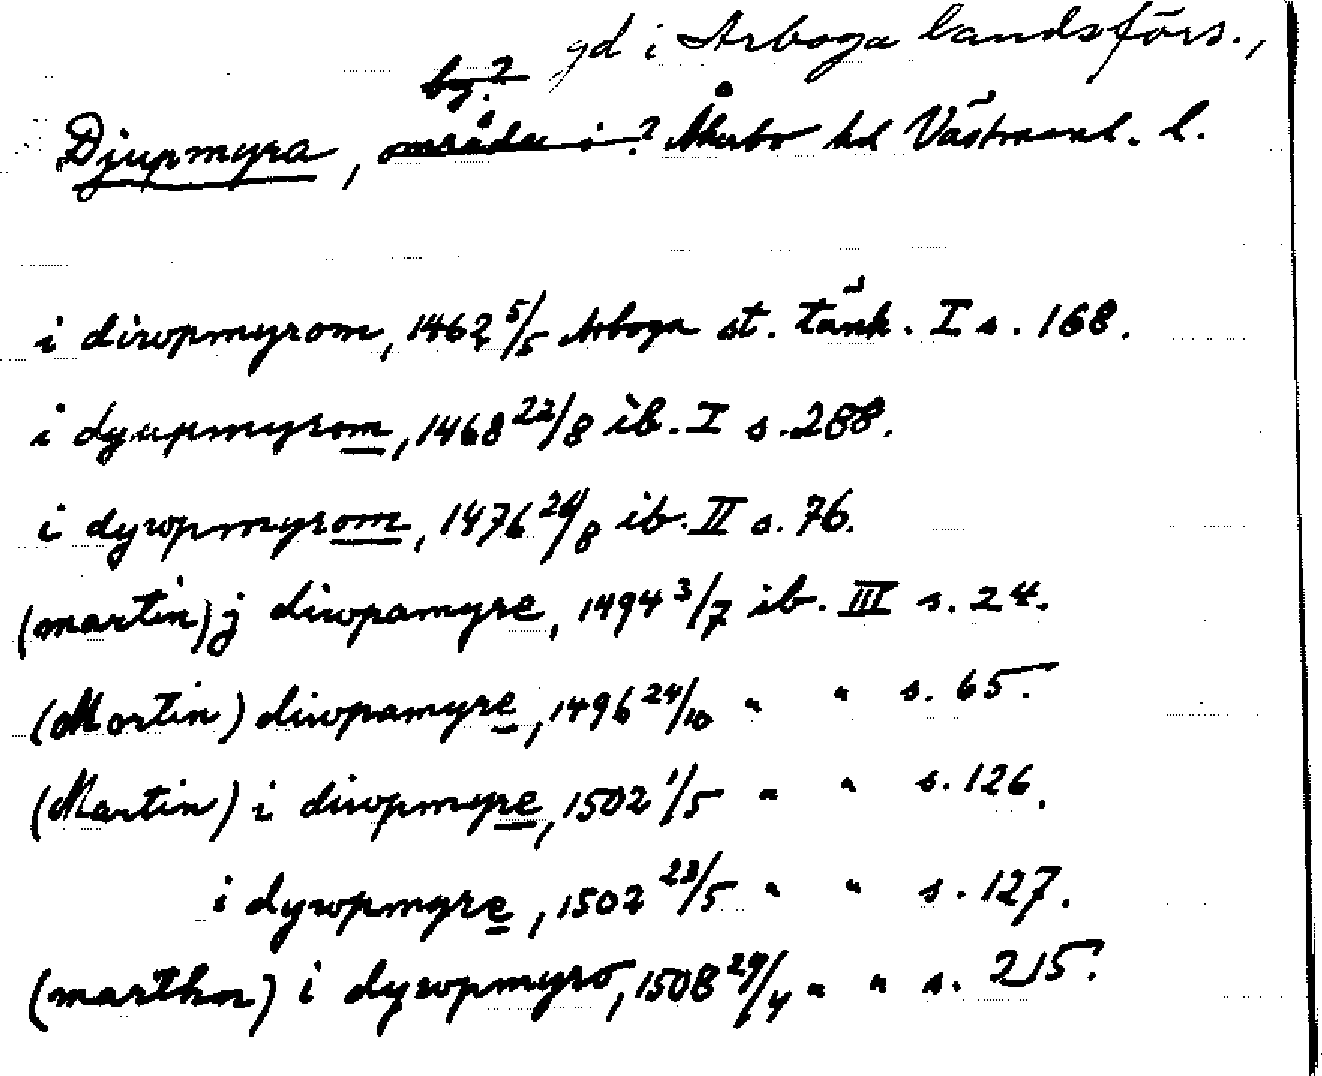 gd i Arboga landsförs.,
by.?
Djupmyra, område i ? Åkerbo hd Västmanl. l.
i diwpmyrom, 1462 5/5 Arboga st. tänk. I s. 168.
i dyupmyrom, 1468 22/8 ib. I s. 288.
i dywpmyrom, 1476 26/8 ib. II s. 76.
(martin) j diwpamyre, 1494 3/7 ib. III s. 24.
(Mortin) diwpamyre, 1496 24/10 " " s. 65.
(Martin) i diwpmyre, 1502 1/5 " " s. 126.
i dywpmyre, 1502 23/5 " " s. 127.
i dywpmyro, 1508 29/4 " " s. 215.